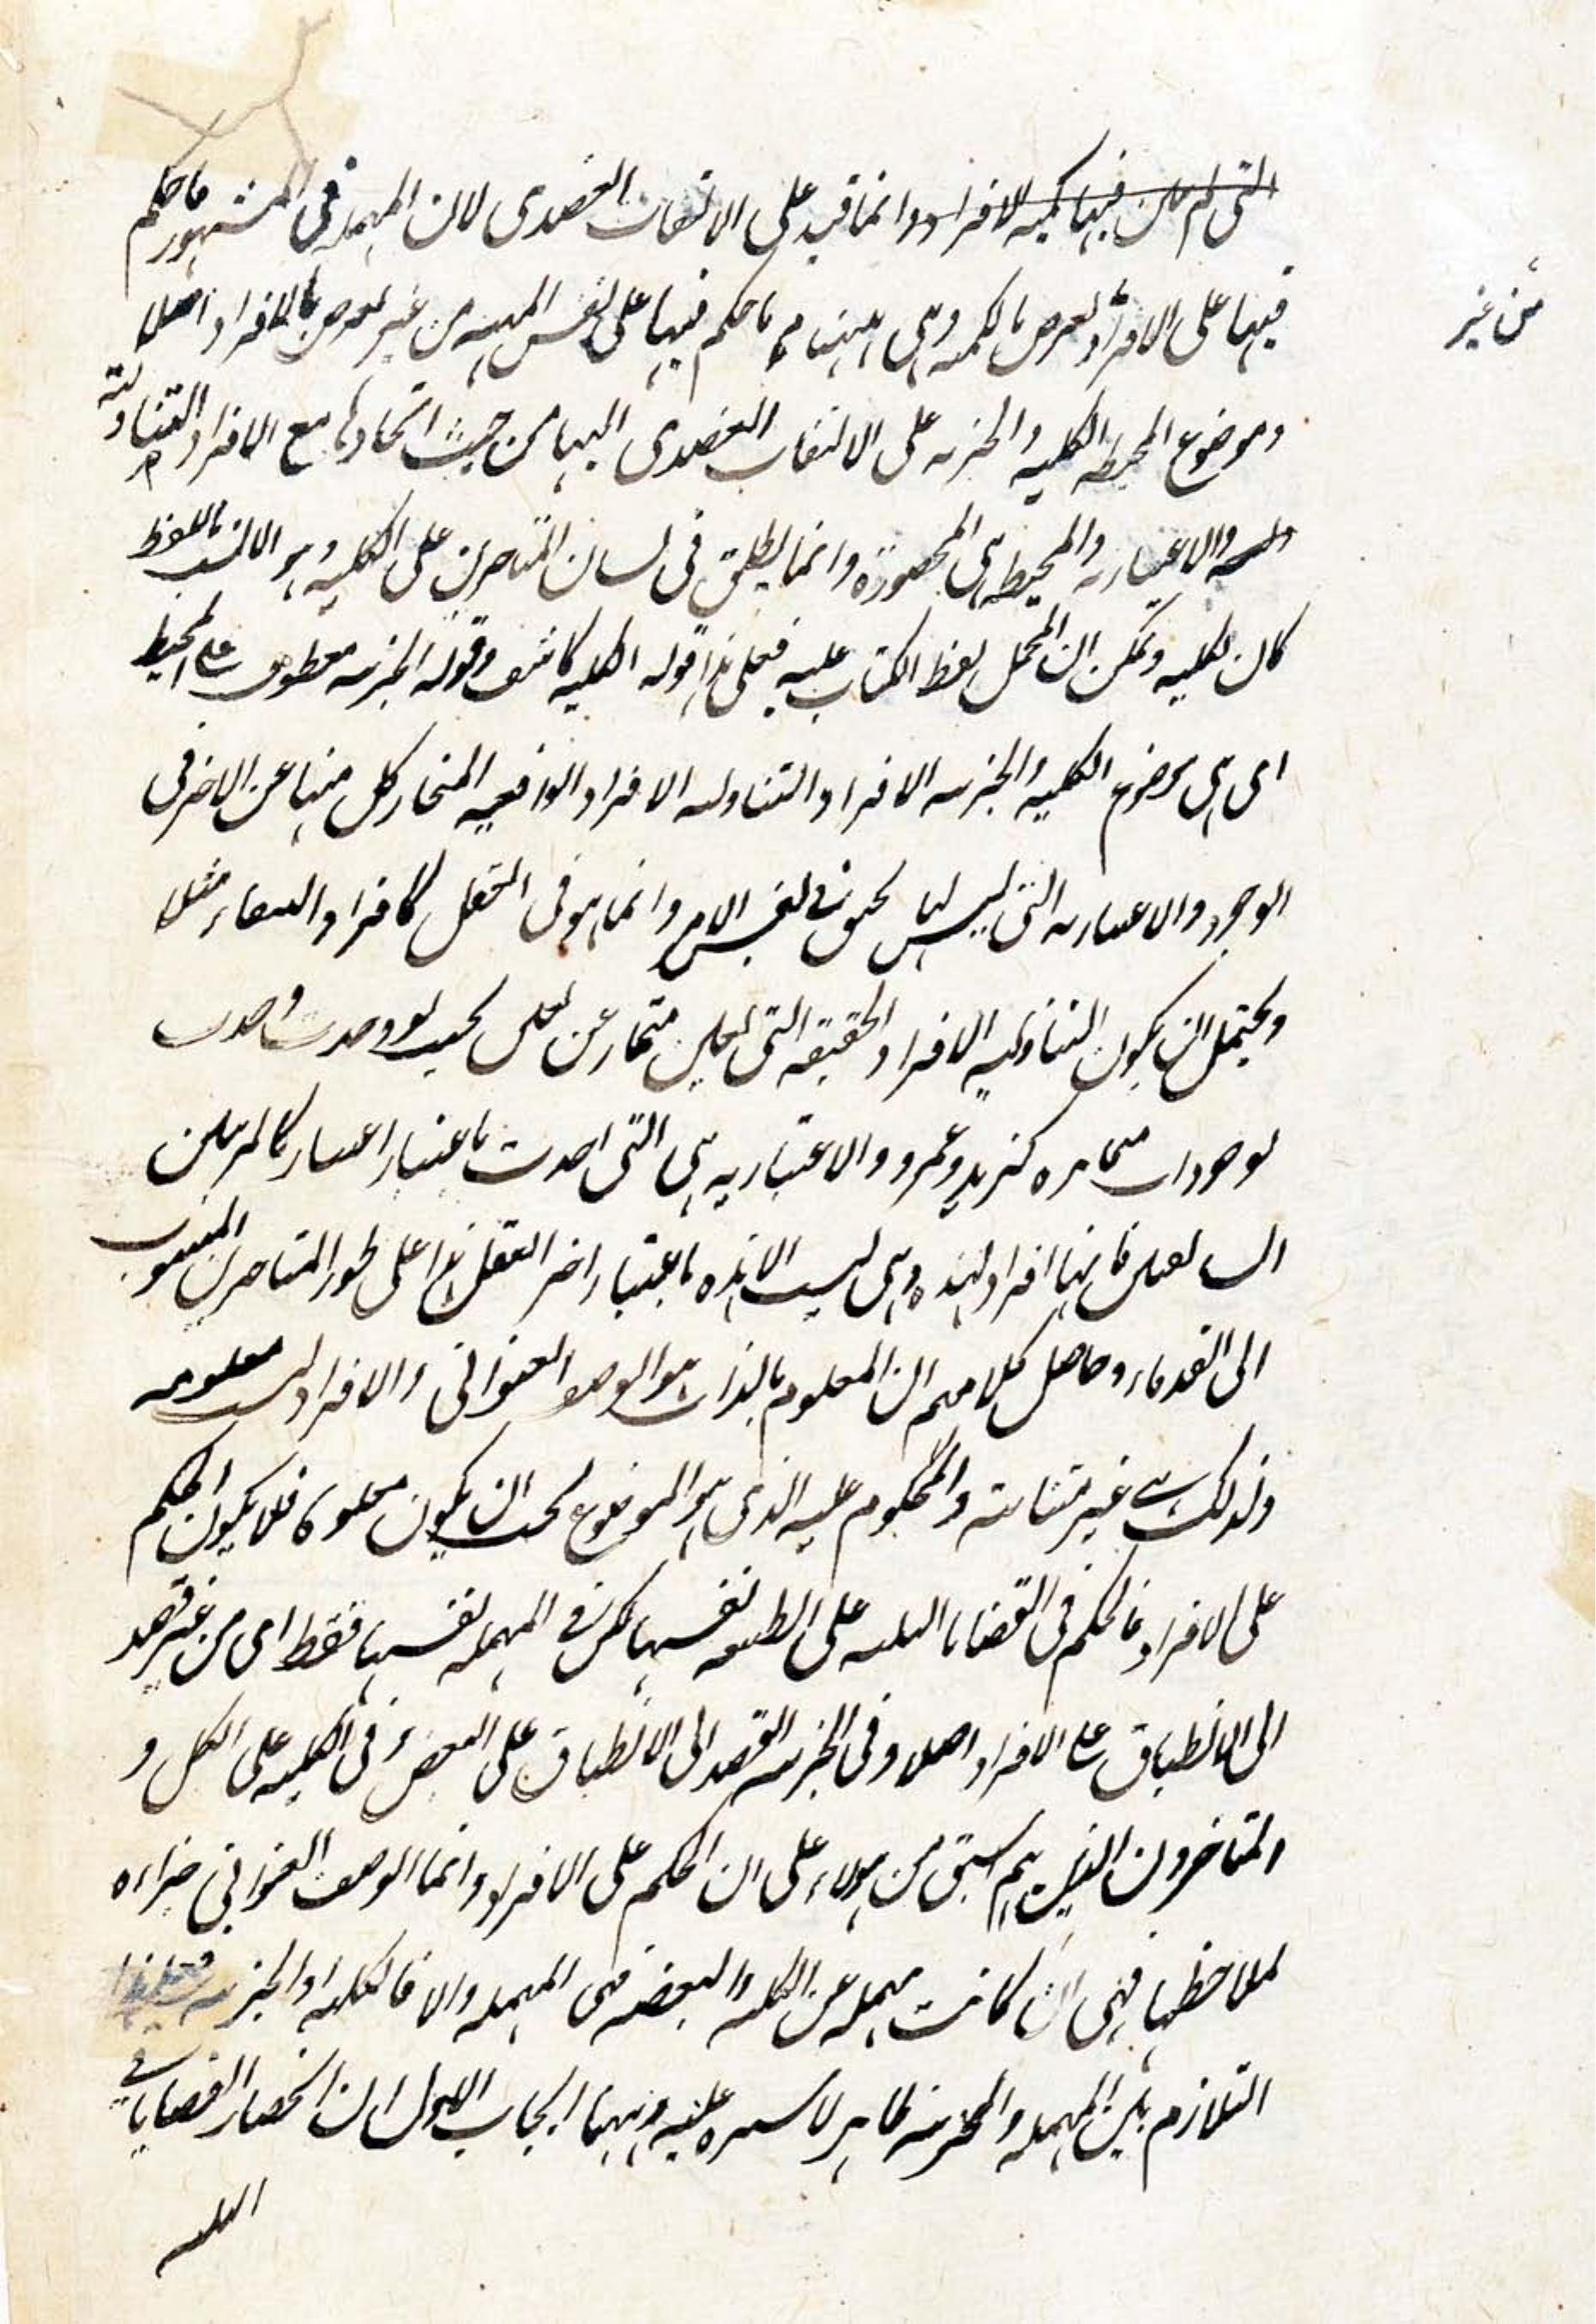 التى لم يكن فيها كمية الافراد وانما قيد على الالتفات القصدى لان المهملة فى المشهور ما حكم
من غير
فيها على الافراد تعرض بالكمية وهى ههنا ما حكم فيها على نفس المهية من غير تعرض بالافراد اصلا
وموضوع المحيطة الكلية والجزئية على الالتفات القصدى اليها من حيث اتحادها مع الافراد المتناولية
والاعتبارية والمحيطة هى المحصورة وانما يطلق فى لسان المتاخرين على الكلية وهو الانسب باللفظ
كان لكليه ويمكن ان يحمل لفظ الكتاب عليه فعلى هذا قوله الكلية كاشف وقوله الجزئية معطوف على المحيطة
اى هى موضوع الكلية والجزئية الافراد المتناولية الافراد الواقعية المنحاز كل منها عن الاخر فى
الوجود والاعتبارية التى ليس لها تحقق فى نفس الامر وانما هو فى التعقل كافراد العنقاء مثلا
ويحتمل ان يكون المتناولية الافراد الحقيقة التى تعلق منحاز عن بحيث لو وجدت وجدت
بوجودات منحازة كزيد وعمرو والاعتبارية هى التى اخذت باعتبار اعتبار كالمرتبتين
فانها افراد لهذه وهى ليست الا هذه باعتبار اخر العقل هذا على طور المتاخرين المنسوب
الى القدماء وحاصل كلامهم ان المعلوم بالذات هو الوصف العنوانى والافراد ليست معلومة
ولذلك هى غير متناهية والمحكوم عليه الذى هو الموضوع يجب ان يكون معلوما فلا يكون الحكم
على الافراد فالحكم فى القضايا الثلثة على الطبيعة نفسها لكن فى المهملة نفسها فقط اى من غير قصد
الى الانطباق على الافراد اصلا وفى الجزئية القصد الى الانطباق على البعض وفى الكلية على الكل و
المتاخرون الذين هم اسبق من هولاء على ان الحكم على الافراد وانما الوصف العنوانى مراءة
لملاحظتها فهى ان كانت مهملة عن الكلية والبعضية فهى المهملة والا فالكلية او الجزئية
التلازم بين المهملة والجزئية ظاهر لا سترة عليه وههنا ابحاث الاول ان انحصار القضايا فى
الثلثة